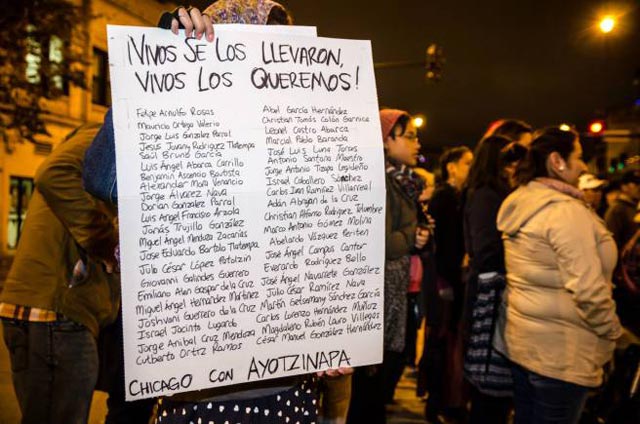 ¡VIVOS SE LOS LLEVARON,
VIVOS LOS QUEREMOS!
Felipe Arnolfo Rosas
Mauricio Ortega Valerio
Jorge Luis Gonzalez Parral
Jesus Jovany Rodriguez Tlatempa
Saúl Bruno García
Luis Angel Abarca Carrillo
Benjamin Ascencio Bautista
Alexander Mora Venancio
Jorge Alvarez Nava
Dorian Gonzalez Parral
Luis Angel Francisco Arzola
Jonás Trujillo Gonzalez
Miguel Angel Mendoza Zacarías
Jose Eduardo Bartolo Tlatempa
Julio César López Patolzin
Giovanni Galindes Guerrero
Emiliano Alen Gaspar de la Cruz
Miguel Angel Hernandez Martínez
Joshvani Guerrero de la Cruz
Israel Jacinto Lugardo
Jorge Anibal Cruz Mendoza
Cutberto Ortiz Ramos
Abel García Hernández
Christian Tomás Colón Garnica
Leonel Castro Abarca
Marcial Pablo Baranda
José Luis Luna Torres
Antonio Santana Maestro
Jorge Antonio Tizapa Legideño
Israel Caballero Sánchez
Carlos Ivan Ramírez Villarreal
Adán Abrajan de la Cruz
Christian Alfonso Rodríguez Telumbre
Marco Antonio Gómez Molina
Abelardo Vázquez Periten
José Angel Campos Cantor
Everardo Rodríguez Bello
José Angel Navarrete González
Julio César Ramírez Nava
Martín Getsemany Sánchez García
Carlos Lorenzo Hernández Muñoz
Magdaleno Rubén Lauro Villegas
César Manuel González Hernández
CHICAGO CON AYOTZINAPA